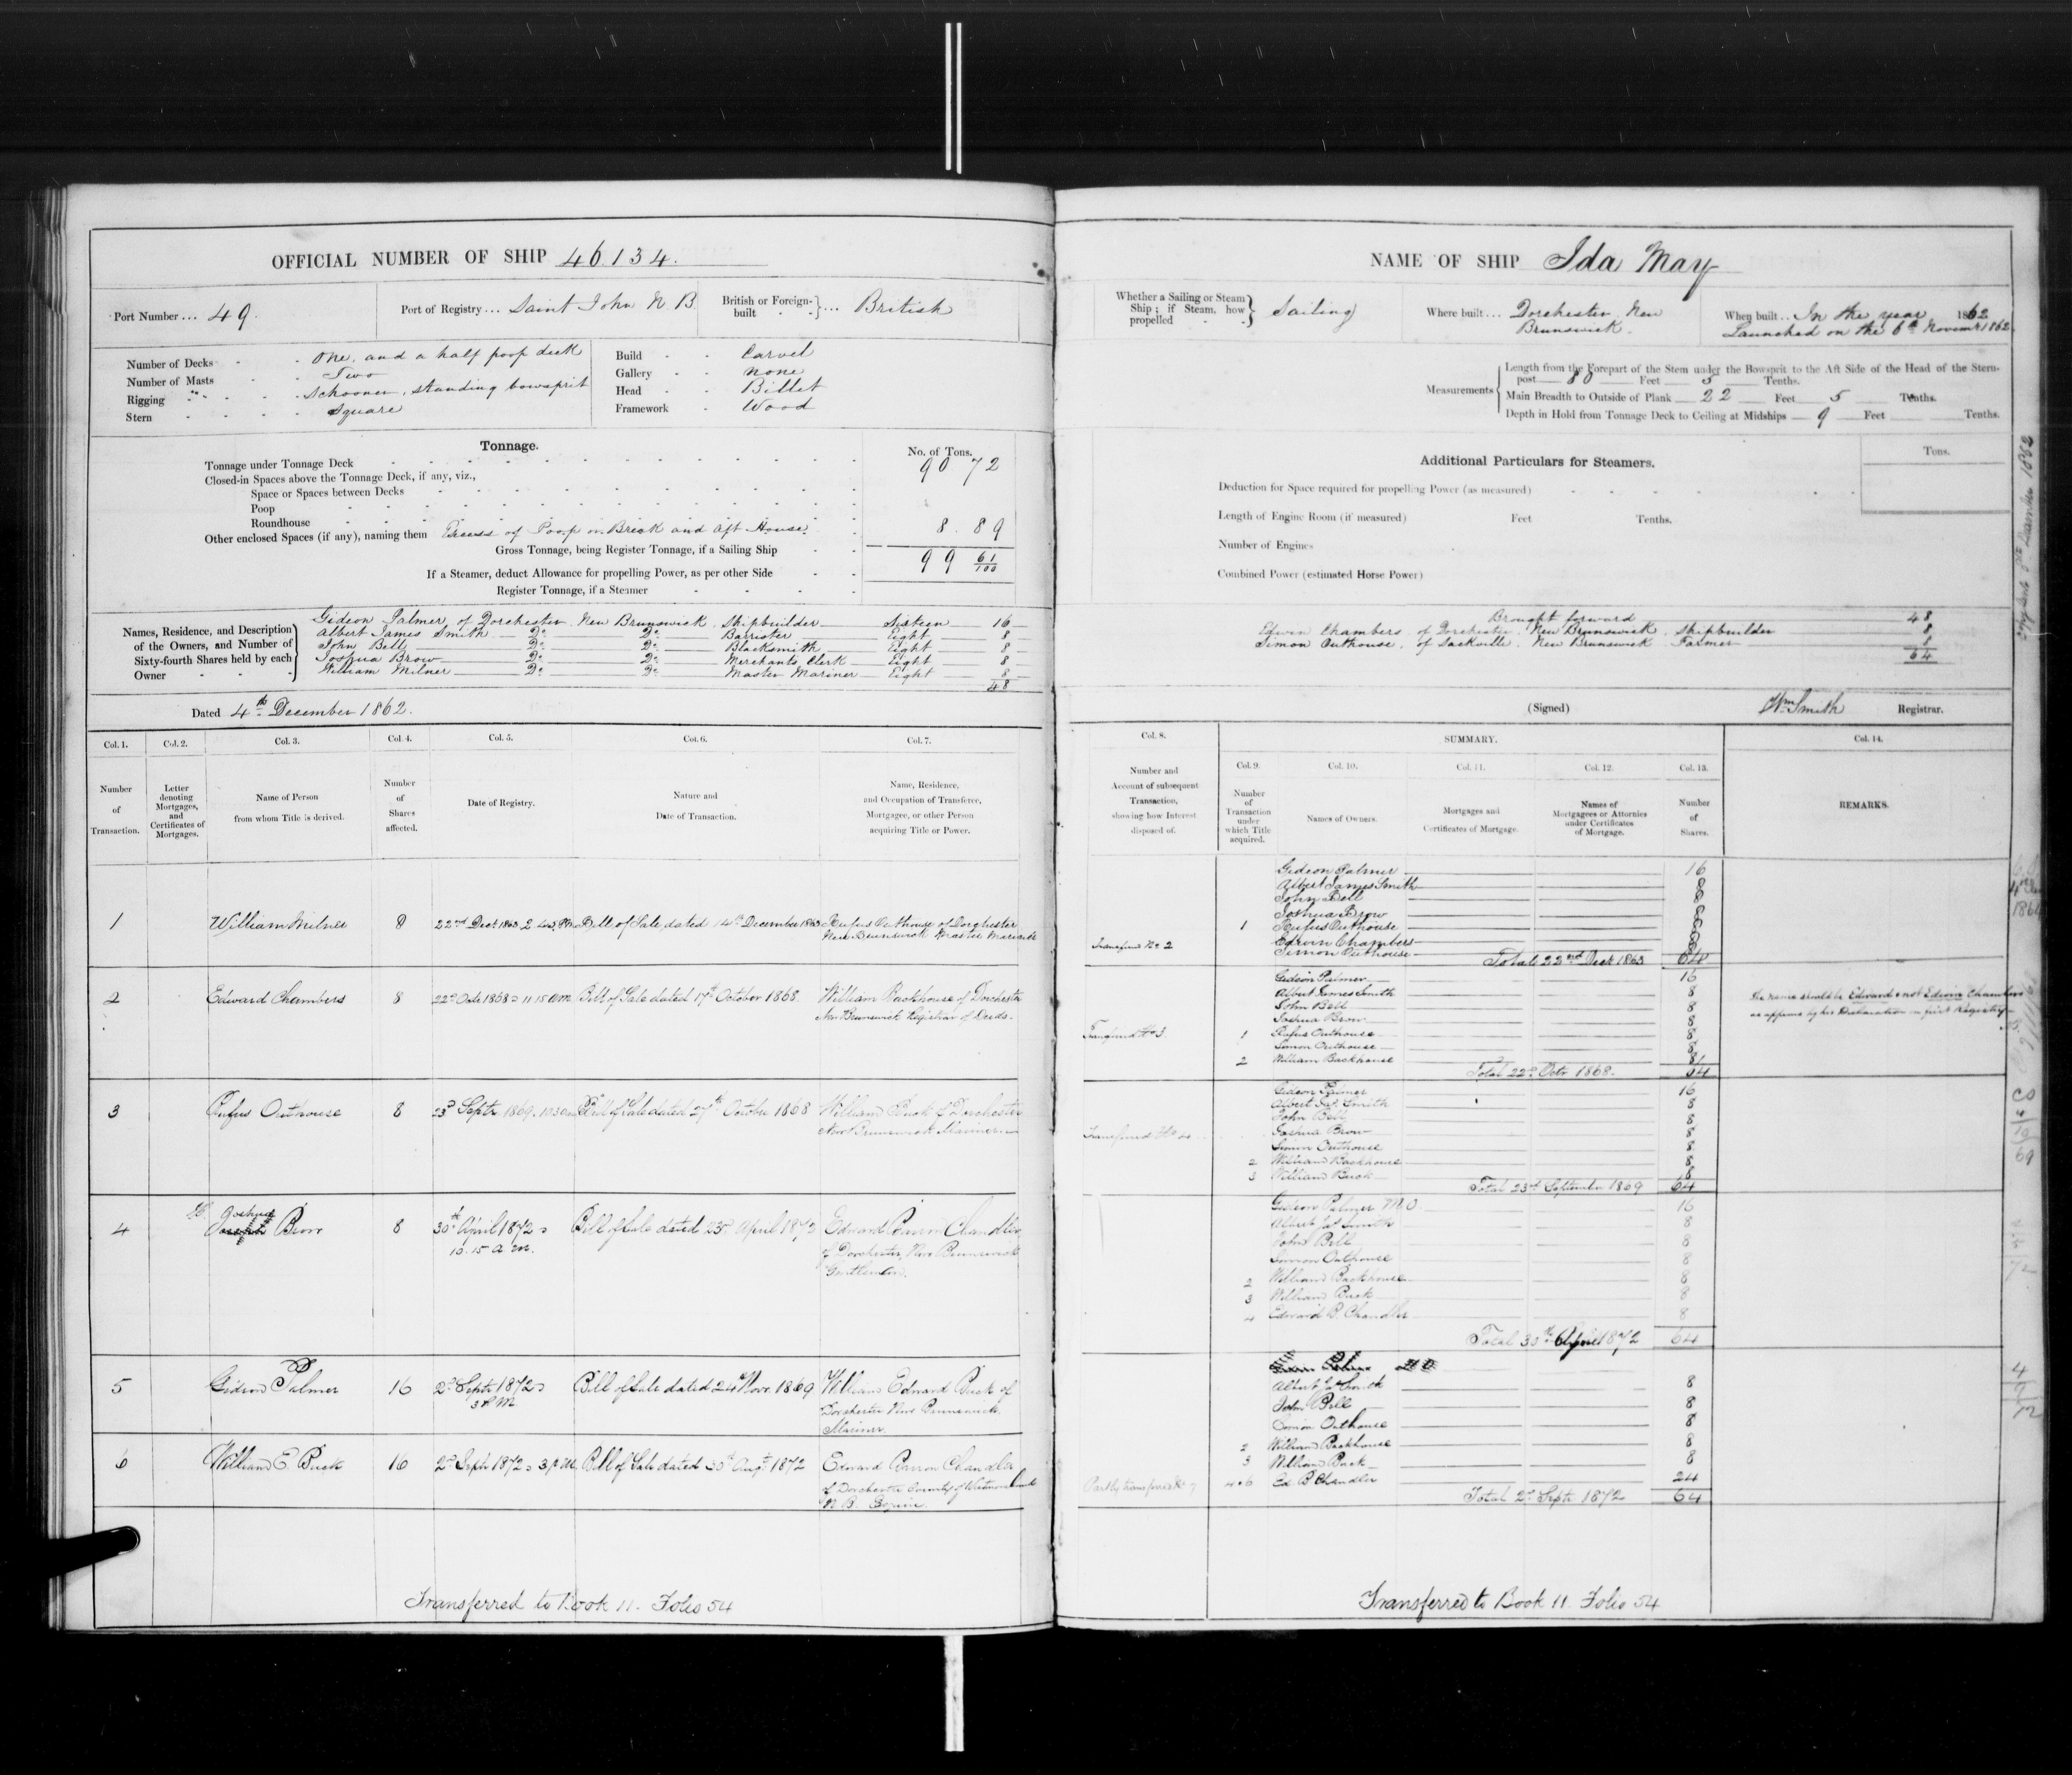 OFFICIAL NUMBER OF SHIP 46.134.
Port Number ... 49.
Port of Registry ... Saint John N. B
British or Foreign-built } ... British
Number of Decks - - One, and a half poop deck
Number of Masts - - Two
Rigging - - Schooner, standing bowsprit
Stern - - - - Square
Build - - Carvel
Gallery - - None
Head - - Billet
Framework - Wood
Tonnage.
No. of Tons.
Tonnage under Tonnage Deck 90 72
Closed-in Spaces above the Tonnage Deck, if any, viz.,
Space or Spaces between Decks
Poop
Roundhouse
Other enclosed Spaces (if any), naming them Excess of Poop or Break and Aft House. 8. 89
Gross Tonnage, being Register Tonnage, if a Sailing Ship 99 61/100
If a Steamer, deduct Allowance for propelling Power, as per other Side
Register Tonnage, if a Steamer
Names, Residence, and Description of the Owners, and Number of Sixty-fourth Shares held by each Owner
Gideon Palmer, of Dorchester New Brunswick, Shipbuilder Sixteen 16
Albert James Smith Do Do Barrister Eight 8
John Bell Do Do Blacksmith Eight 8
Joshua Brow Do Do Merchants Clerk Eight 8
William Milner Do Do Master Mariner Eight 8
48
Dated 4th December 1862.
Col. 1. Col. 2. Col. 3. Col. 4. Col. 5. Col. 6. Col. 7.
Number of Transaction.
Letter denoting Mortgages, and Certificates of Mortgages.
Name of Person from whom Title is derived.
Number of Shares affected.
Date of Registry.
Nature and Date of Transaction.
Name, Residence, and Occupation of Transferee, Mortgagee, or other Person acquiring Title or Power.
1 William Milner 8 22nd Decr 1863 2 45 PM Bill of Sale dated 14th December 1863 Rufus Outhouse of Dorchester
New Brunswick Master Mariner
2 Edward Chambers 8 22d Octr 1868 11 15 am Bill of Sale dated 17th October 1868. William Backhouse of Dorchester
New Brunswick Registrar of Deeds.
3 Rufus Outhouse 8 23d Septr 1869. 10 30 am Bill of Sale dated 27th October 1868 William Buck of Dorchester
New Brunswick Mariner.
4 Joshua
Joseph Brow 8 30th April 1872 Bill of Sale dated 23d April 1872 Edward Barron Chandler
10.15 a.m. of Dorchester, New Brunswick
Gentleman.
5 Gideon Palmer 16 2d Septr 1872 Bill of Sale dated 24th Novr 1869 William Edward Buck of
3 PM Dorchester New Brunswick.
Mariner.
6 William E. Buck 16 2d Septr 1872 3 P.M. Bill of Sale dated 30th Augt 1872 Edward Barron Chandler
of Dorchester County of Westmorland
N. B. Esquire.
Transferred to Book 11. Folio 54
NAME OF SHIP Ida May
Whether a Sailing or Steam Ship; if Steam, how propelled } Sailing
Where built ... Dorchester New
Brunswick.
When built ... In the year 1862
Launched on the 6th Novemr 1862
Measurements
Length from the Forepart of the Stem under the Bowsprit to the Aft Side of the Head of the Stern-
post 80 Feet 5 Tenths.
Main Breadth to Outside of Plank 22 Feet 5 Tenths.
Depth in Hold from Tonnage Deck to Ceiling at Midships 9 Feet Tenths.
Additional Particulars for Steamers.
Tons.
Deduction for Space required for propelling Power (as measured)
Length of Engine Room (if measured) Feet Tenths.
Number of Engines
Combined Power (estimated Horse Power)
Brought forward 48
Edwin Chambers, of Dorchester, New Brunswick, Shipbuilder 8
Simon Outhouse, of Sackville, New Brunswick Farmer 8
64
(Signed) Wm Smith Registrar.
Col. 8. SUMMARY. Col. 14.
Number and Account of subsequent Transaction, showing how Interest disposed of.
Col. 9. Col. 10. Col. 11. Col. 12. Col. 13.
Number of Transaction under which Title acquired.
Names of Owners.
Mortgages and Certificates of Mortgage.
Names of Mortgagees or Attornies under Certificates of Mortgage.
Number of Shares.
REMARKS.
Gideon Palmer 16
Albert James Smith 8
John Bell 8
Joshua Brow 8
1 Rufus Outhouse 8
Transferred No 2 Edwin Chambers 8
Simon Outhouse 8
Total 22nd Decr 1863 64
Gideon Palmer 16
Albert James Smith 8
John Bell 8
Joshua Brow 8
Transferred No 3. 1 Rufus Outhouse 8
Simon Outhouse 8
2 William Backhouse 8
Total 22d Octr 1868. 64
The name should be Edward & not Edwin Chambers
as appears by his Declaration on first Registry
Gideon Palmer 16
Albert Jas. Smith 8
John Bell 8
Transferred No 4 Joshua Brow 8
Simon Outhouse 8
2 William Backhouse 8
3 William Buck 8
Total 23rd September 1869 64
Gideon Palmer M.O. 16
Albert Jas Smith 8
John Bell 8
Simon Outhouse 8
2 William Backhouse 8
3 William Buck 8
4 Edward B. Chandler 8
Total 30th April 1872 64
Albert Jas Smith 8
John Bell 8
Simon Outhouse 8
2 William Backhouse 8
3 William Buck 8
Partly transferred No 7 4.6 Ed. B Chandler 24
Total 2d Septr 1872 64
Transferred to Book 11. Folio 54